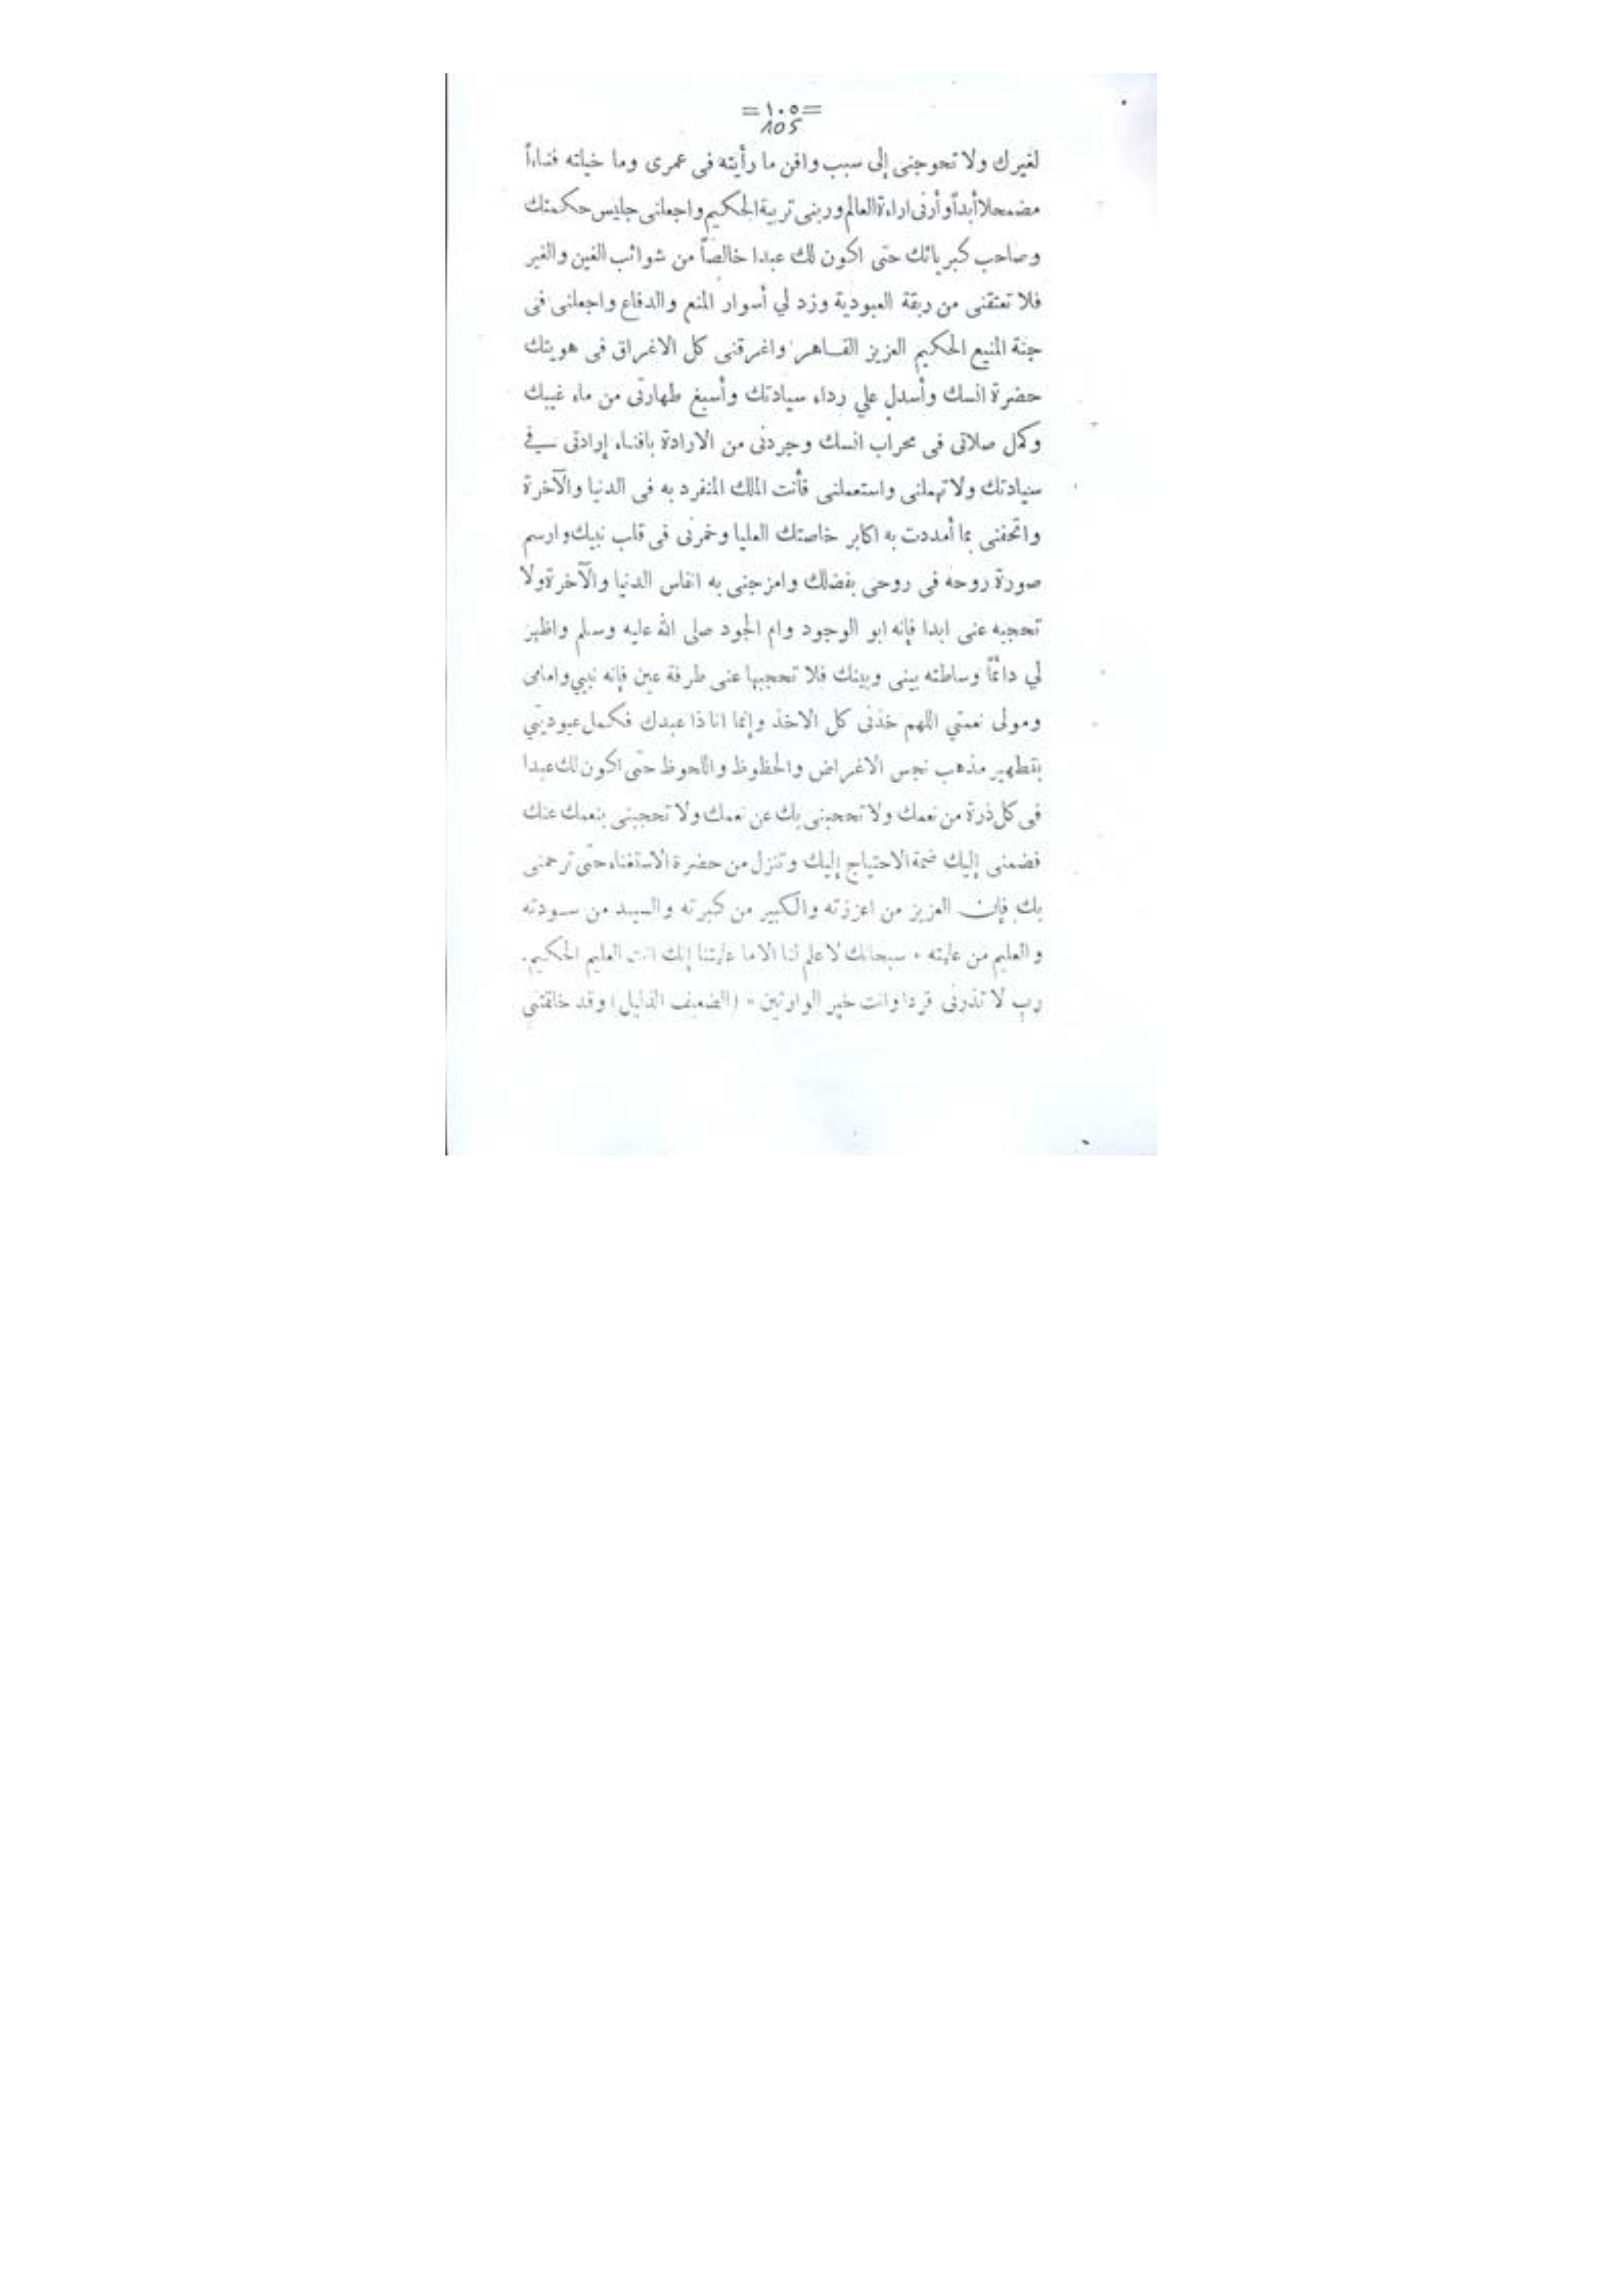 =١٠٥=
105
لغيرك ولا تحوجنى إلى سبب وافن ما رأيته فى عمرى وما خياته فناءاً
مضمحلا أبداً وأرنى اراءة العالم وربنى تربية الحكيم واجعلنى جليس حكمتك
وصاحب كبريائك حتى اكون لك عبدا خالصاً من شوائب الغين والغير
فلا تعتقنى من ربقة العبودية وزد لي أسوار المنع والدفاع واجعلنى فى
جنة المنيع الحكيم العزيز القاهر واغرقنى كل الاغراق فى هويتك
حضرة انسك وأسدل علي رداء سيادتك وأسبغ طهارتى من ماء غيبك
وكمل صلاتى فى محراب انسك وجردنى من الارادة بافناء إرادتى في
سيادتك ولا تهملنى واستعملنى فأنت الملك المنفرد به فى الدنيا والآخرة
واتحفنى بما أمددت به اكابر خاصتك العليا وخمرنى فى قلب نبيك وارسم
صورة روحه فى روحى بفضلك وامزجنى به انفاس الدنيا والآخرة ولا
تحجبه عنى ابدا فإنه ابو الوجود وام الجود صلى الله عليه وسلم واظهر
لي دائماً وساطته بينى وبينك فلا تحجبها عنى طرفة عين فإنه نبيي وامامى
ومولى نعمتي اللهم خذنى كل الاخذ وإنما انا ذا عبدك فكمل عبوديتي
بتطهير مذهب نجس الاغراض والحظوظ واللحوظ حتى اكون لك عبدا
فى كل ذرة من نعمك ولا تحجبنى بك عن نعمك ولا تحجبنى بنعمك عنك
فضمنى إليك ضمة الاحتياج إليك وتنزل من حضرة الاستغناء حتى ترحمنى
بك فإن العزيز من اعززته والكبير من كبرته والسيد من سودته
والعليم من علمته * سبحانك لا علم لنا الا ما علمتنا إنك انت العليم الحكيم.
رب لا تذرنى فردا وانت خير الوارثين * (الضعيف الذليل) وقد خلقتنى